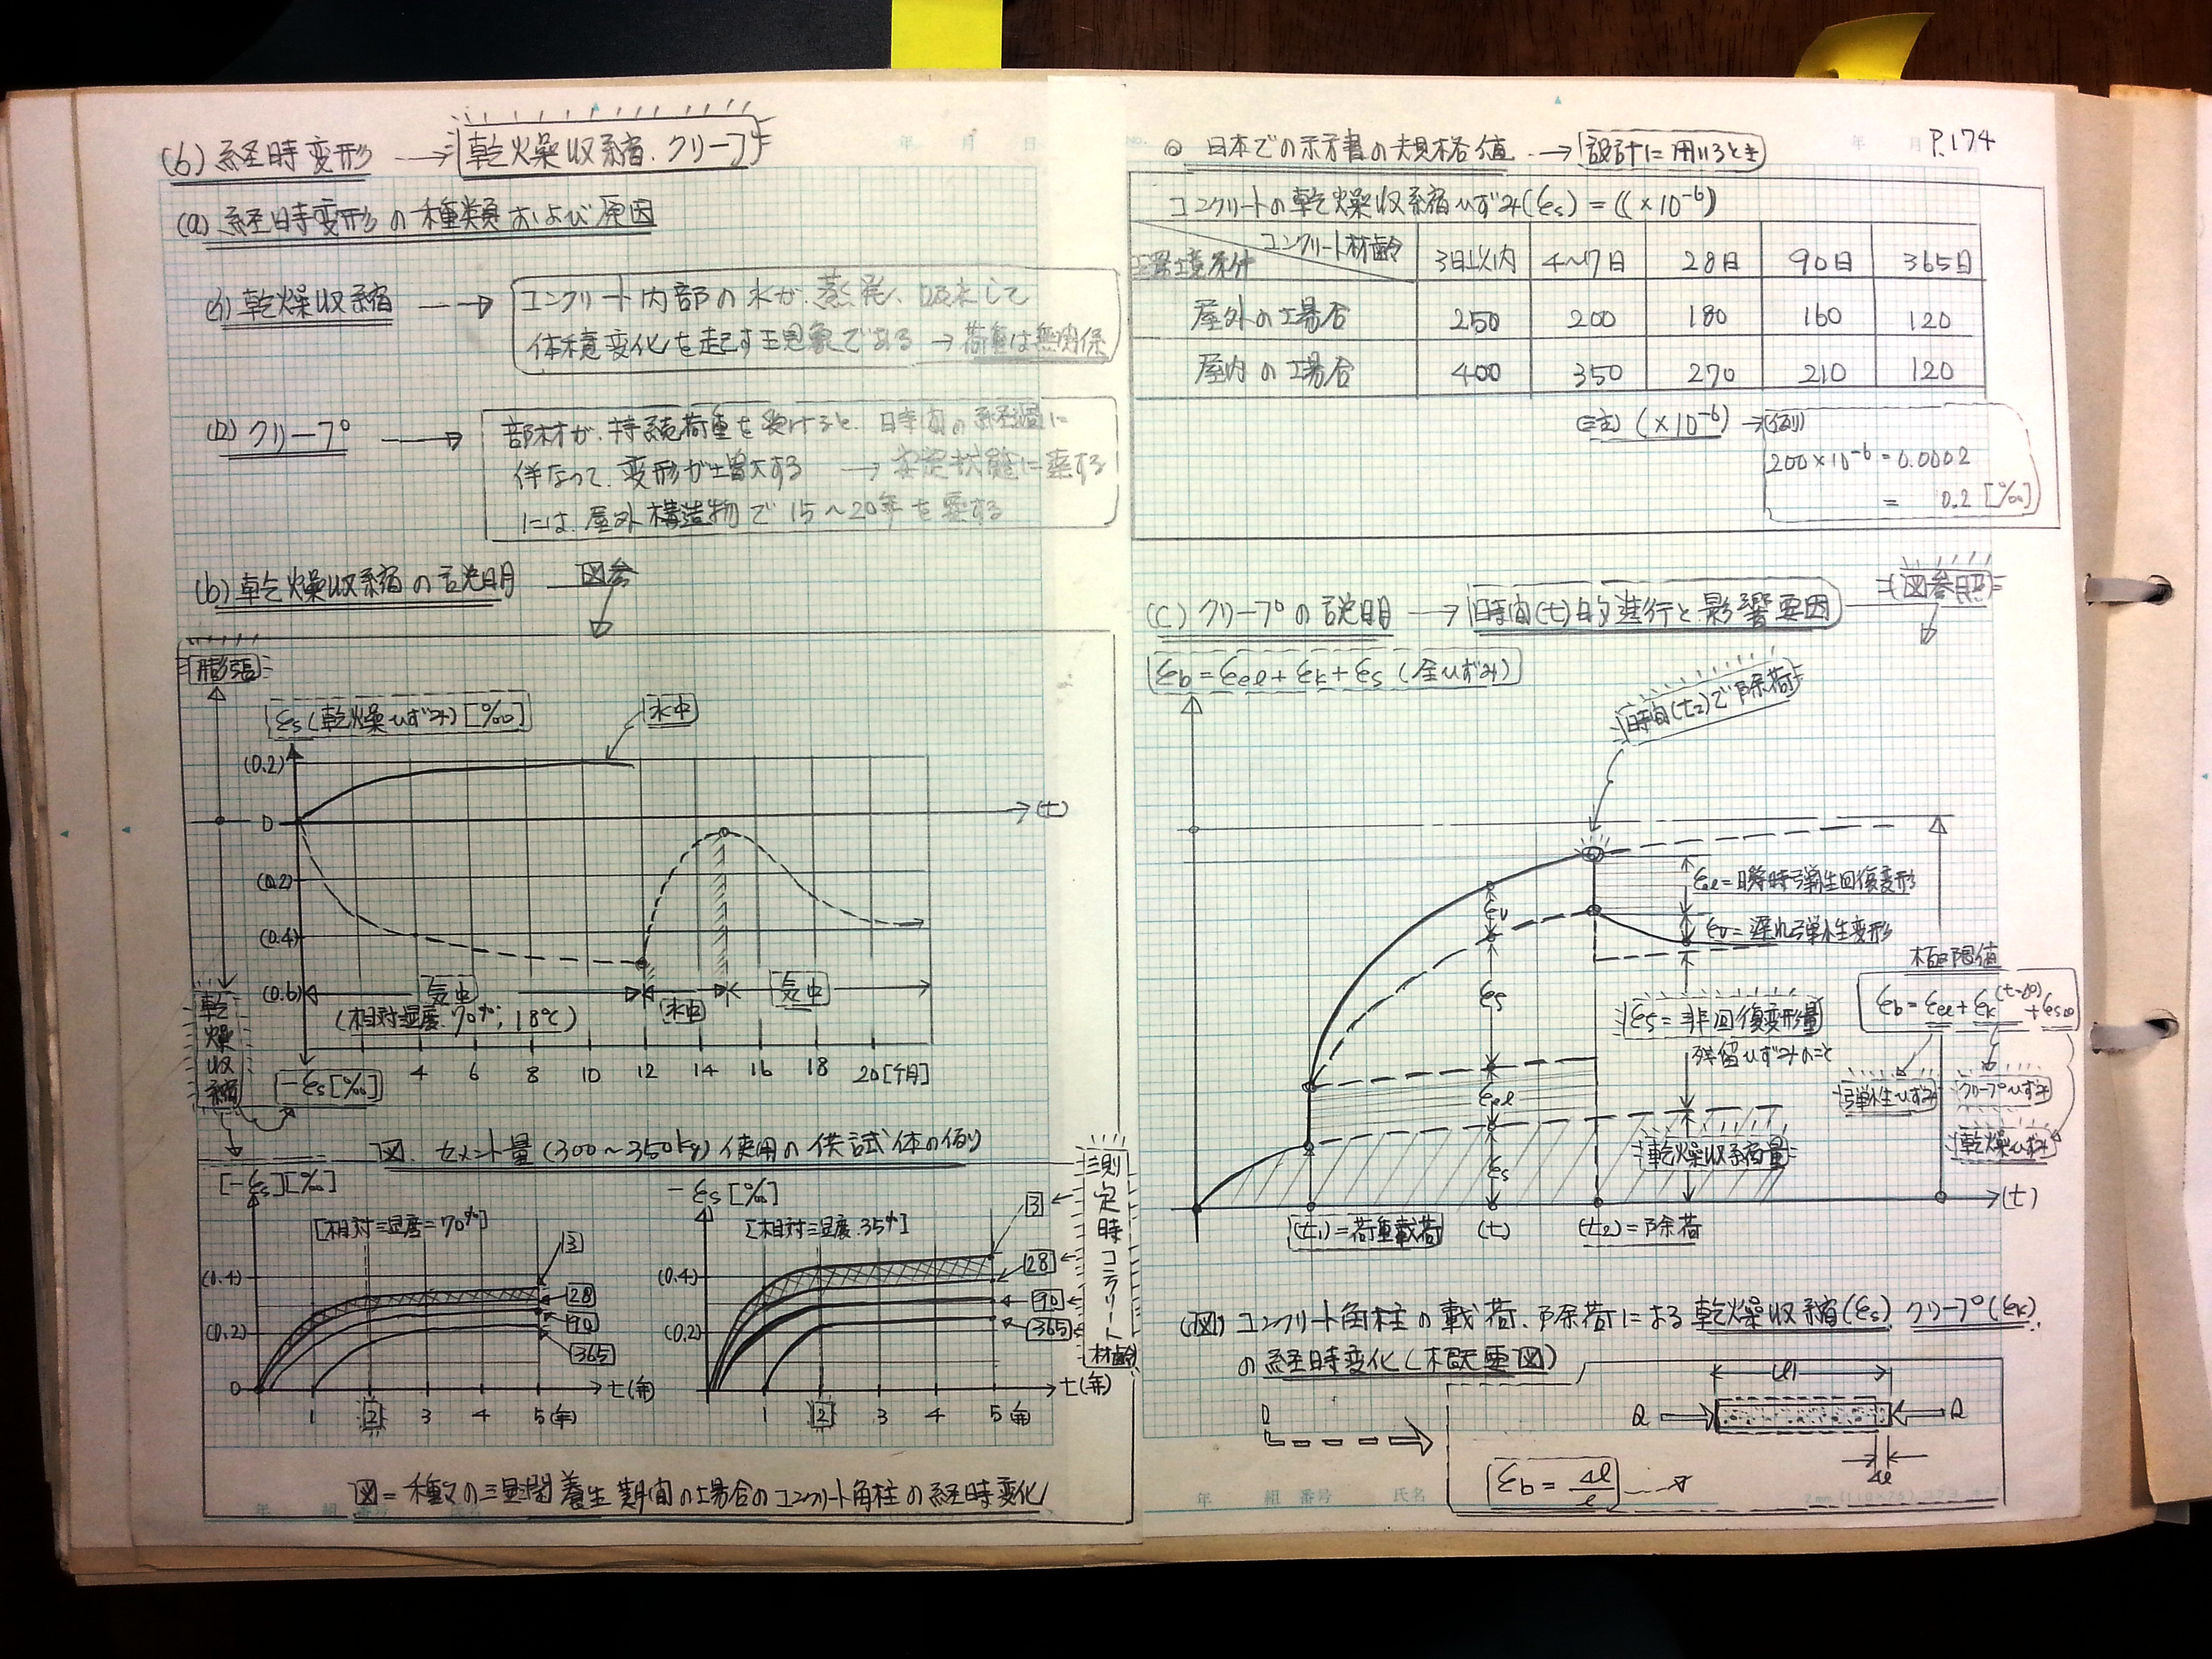 (b) 経時変形 → 乾燥収縮.クリープ
(a) 経時変形の種類および原因
(イ) 乾燥収縮 → コンクリート内部の水が.蒸発、吸水して
体積変化を起す現象である → 荷重は無関係
(ロ) クリープ → 部材が.持続荷重を受けると.時間の経過に
伴なって.変形が増大する → 安定状態に達する
には.屋外構造物で15〜20年を要する
(b) 乾燥収縮の説明 図参
膨張
εs(乾燥ひずみ)[‰]
水中
(0.2)
0
(t)
(0.2)
(0.4)
(0.6)
気中 水中 気中
(相対湿度.70%; 18℃)
乾燥収縮
-εs[‰]
4 6 8 10 12 14 16 18 20[ケ月]
図. セメント量(300〜350kg)使用の供試体の例
[-εs][‰]
[相対湿度=70%]
3
28
90
365
(0.4)
(0.2)
0
1 2 3 4 5(年)
t(年)
-εs[‰]
[相対湿度.35%]
3
28
90
365
(0.4)
(0.2)
1 2 3 4 5(年)
t(年)
測定時コンクリート材齢
図=種々の湿潤養生期間の場合のコンクリート角柱の経時変化
P.174
◎ 日本での示方書の規格値. → 設計に用いるとき
コンクリートの乾燥収縮ひずみ(εs) = ((×10⁻⁶)
コンクリート材齢
環境条件
3日以内 4〜7日 28日 90日 365日
屋外の場合 250 200 180 160 120
屋内の場合 400 350 270 210 120
(注) (×10⁻⁶) → (例)
200×10⁻⁶ = 0.0002
= 0.2 [‰]
(C) クリープの説明 → 時間(t)的進行と影響要因
図参照
εb = εel + εk + εs (全ひずみ)
時間(t2)で除荷
εel = 瞬時弾性回復変形
εv = 遅れ弾性変形
εv
εf
εel
εs
εf = 非回復変形量
残留ひずみのこと
乾燥収縮量
極限値
εb = εel + εk(t=∞) + εs∞
弾性ひずみ
クリープひずみ
乾燥ひずみ
(t)
(t1)=荷重載荷 (t) (t2)=除荷
(図) コンクリート角柱の載荷.除荷による乾燥収縮(εs).クリープ(εk).
の経時変化(概要図)
εb = Δl/l
Δl
年 組 番号 氏名